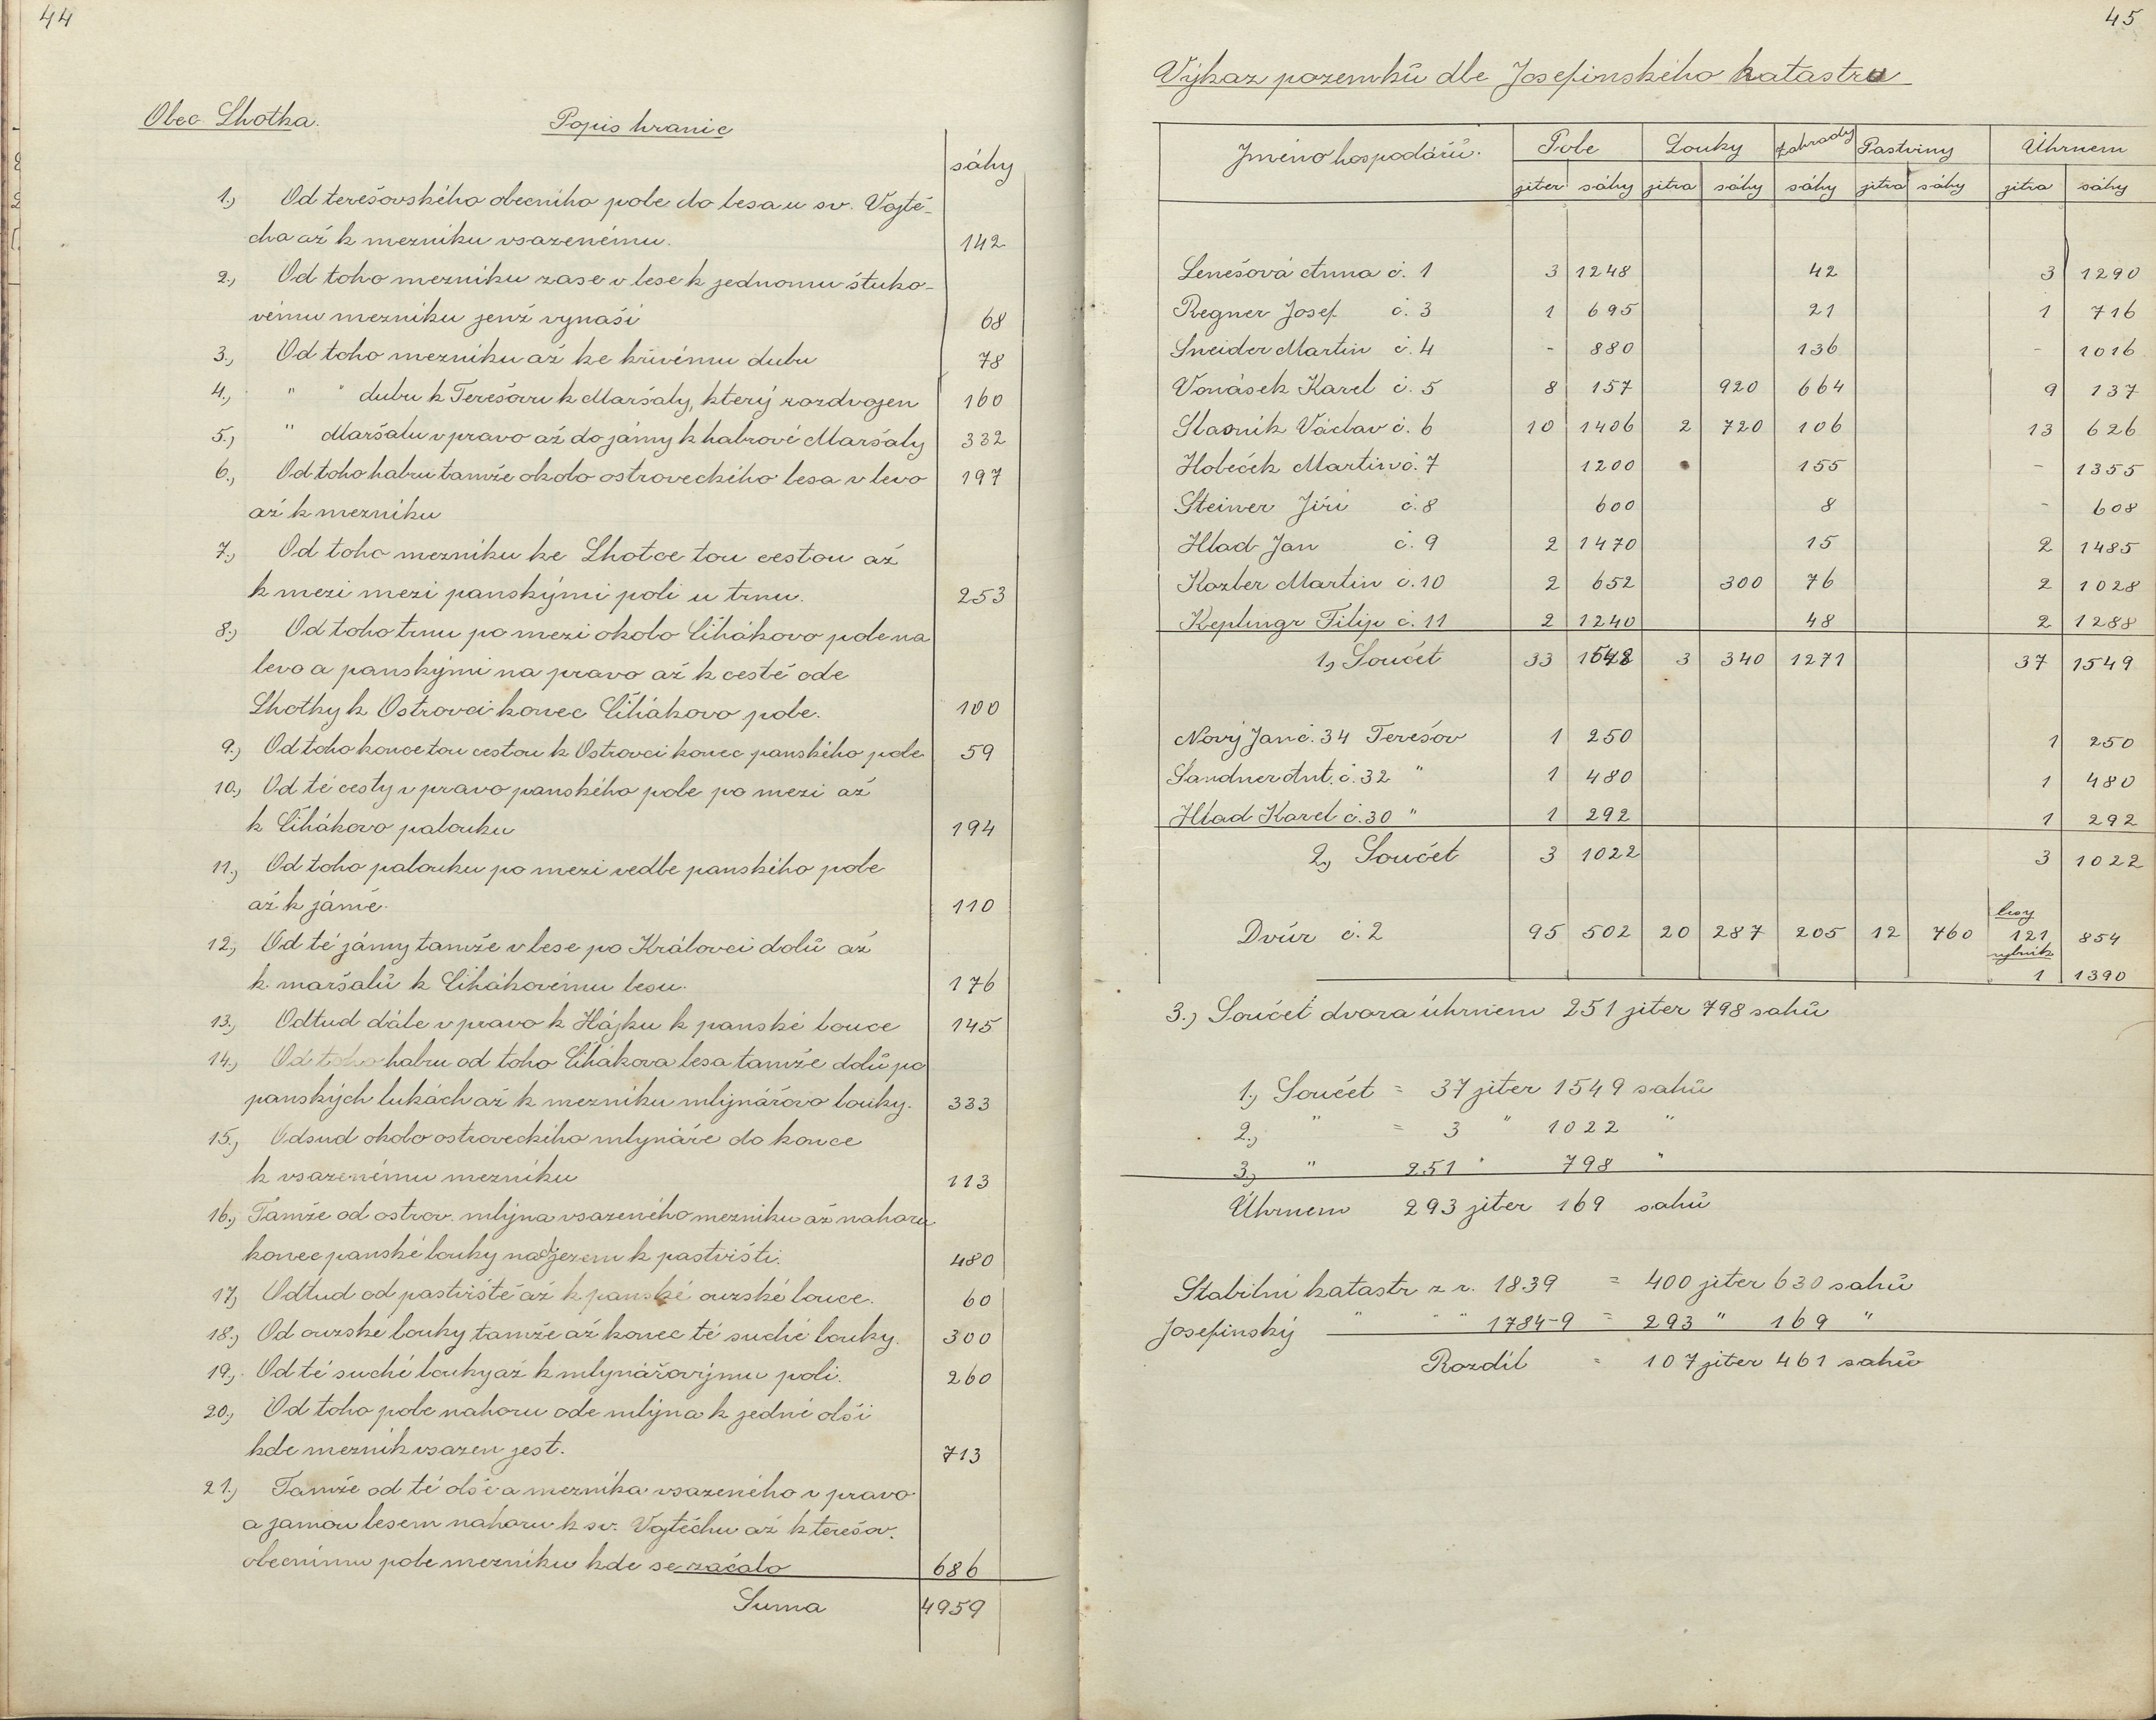 44
Obec Lhotka.
Popis hranic
sáhy
1.) Od terešovského obecního pole do lesa u sv. Vojtě-
cha až k mezníku vsazenému. 142
2.) Od toho mezníku zase v lese k jednomu štuko-
vému mezníku jenž vynáší 68
3.) Od toho mezníku až ke křivému dubu 78
4.) " " dubu k Terešovu k Maršaly, který rozdvojen 160
5.) " Maršalu v pravo až do jámy k habrové Maršaly 332
6.) Od toho habru tamže okolo ostroveckého lesa v levo 197
až k mezníku
7.) Od toho mezníku ke Lhotce tou cestou až
k mezi mezi panskými poli u trnu. 253
8.) Od toho trnu po mezi okolo Čihákovo pole na
levo a panskými na pravo až k cestě ode
Lhotky k Ostrovci konec Čihákovo pole. 100
9.) Od toho konce tou cestou k Ostrovci konec panského pole 59
10.) Od té cesty v pravo panského pole po mezi až
k Čihákovo palouku 194
11.) Od toho palouku po mezi vedle panského pole
až k jámě. 110
12.) Od té jámy tamže v lese po Královci dolů až
k maršalů k Čihákovému lesu. 176
13.) Odtud dále v pravo k Hájku k panské louce 145
14.) Od toho habru od toho Čihákova lesa tamže dolů po
panských lukách až k mezníku mlynářovo louky. 333
15.) Odsud okolo ostroveckého mlynáře do konce
k vsazenému mezníku 113
16.) Tamže od ostrov. mlýna vsazeného mezníku až nahoru
konec panské louky nad jezem k pastvišti. 480
17.) Odtud od pastviště až k panské ouzské louce. 60
18.) Od ouzské louky tamže až konec té suché louky. 300
19.) Od té suché louky až k mlynářovýmu poli. 260
20.) Od toho pole nahoru ode mlýna k jedné olši
kde mezník vsazen jest. 713
21.) Tamže od té olše a mezníka vsazeného v pravo
a jamou lesem nahoru k sv. Vojtěchu až k terešov.
obecnímu pole mezníku kde se začalo 686
Suma 4959
45
Výkaz pozemků dle Josefinského katastru
Jméno hospodářů. Pole Louky Zahrady Pastviny Úhrnem
jiter sáhy jitra sáhy sáhy jitra sáhy jitra sáhy
Lenešová Anna č. 1 3 1248 42 3 1290
Regner Josef č. 3 1 695 21 1 716
Sneider Martin č. 4 - 880 136 - 1016
Vonásek Karel č. 5 8 157 920 664 9 137
Slasnik Václav č. 6 10 1406 2 720 106 13 626
Holeček Martin č. 7 1200 155 - 1355
Steiner Jiří č. 8 600 8 - 608
Hlad Jan č. 9 2 1470 15 2 1485
Kozler Martin č. 10 2 652 300 76 2 1028
Keplingr Filip č. 11 2 1240 48 2 1288
1.) Součet 33 1548 3 340 1271 37 1549
Nový Jan č. 34 Terešov 1 250 1 250
Sandner Ant. č. 32 " 1 480 1 480
Hlad Karel č. 30 " 1 292 1 292
2.) Součet 3 1022 3 1022
lesy
Dvůr č. 2 95 502 20 287 205 12 760 121 854
rybník
1 1390
3.) Součet dvora úhrnem 251 jiter 798 sahů
1.) Součet = 37 jiter 1549 sahů
2.) " = 3 " 1022 "
3.) " 251 " 798 "
Úhrnem 293 jiter 169 sahů
Stabilní katastr z r. 1839 = 400 jiter 630 sahů
Josefinský " " " 1784-9 = 293 " 169 "
Rozdíl = 107 jiter 461 sahů